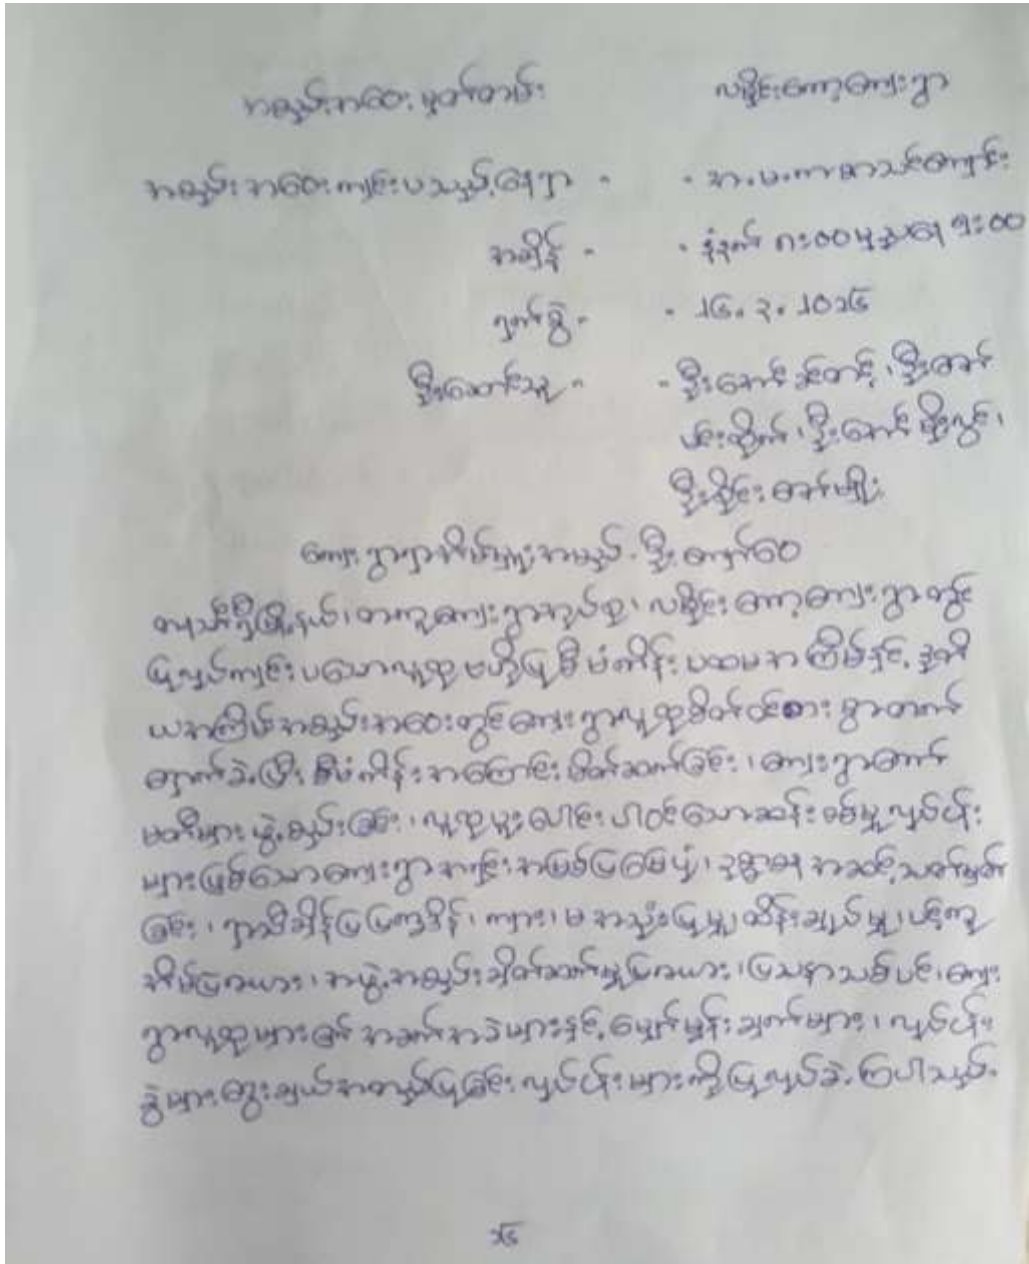 အစည်းအဝေး မှတ်တမ်း လမိုင်းကော့ကျေးရွာ
အစည်းအဝေးကျင်းပသည့်နေရာ - - အ.မ.က စာသင်ကျောင်း
အချိန် - - နံနက် ၈:၀၀ မှ ညနေ ၅:၀၀
ရက်စွဲ - - ၂၆.၃.၂၀၁၆
ဦးဆောင်သူ - - ဦးအောင်နိုင်တင့်၊ ဦးဇော်
ပိုင်းထိုက်၊ ဦးအောင်မျိုးလွင်၊
ဦးစိုင်းဇော်မျိုး
ကျေးရွာရာအိမ်မှူးအမည် - ဦးကျော်ဝေ
မြို့နယ်၊ တကူကျေးရွာအုပ်စု၊ လမိုင်းကော့ကျေးရွာတွင်
ပြုလုပ်ကျင်းပသောလူထုဗဟိုပြုစီမံကိန်း ပထမအကြိမ်နှင့် ဒုတိ
ယအကြိမ်အစည်းအဝေးတွင်ကျေးရွာလူထုစိတ်ဝင်စားစွာတက်
ရောက်ခဲ့ပြီး စီမံကိန်းအကြောင်းမိတ်ဆက်ခြင်း၊ ကျေးရွာကော်
မတီများဖွဲ့စည်းခြင်း၊ လူထုပူးပေါင်းပါဝင်သောဆန်းစစ်မှုလုပ်ငန်း
များဖြစ်သောကျေးရွာအကျဉ်းအမြစ်ပြမြေပုံ၊ ဥစ္စာဓနအဆင့်သတ်မှတ်
ခြင်း၊ ရာသီချိန်ပြပြက္ခဒိန်၊ ကျား၊ မ အသုံးပြုမှုထိန်းချုပ်မှု၊ ပင့်ကူ
အိမ်ပြဇယား၊ အဖွဲ့အစည်းချိတ်ဆက်မှုပြဇယား၊ ပြဿနာသစ်ပင်၊ ကျေး
ရွာလူထုများ၏ အခက်အခဲများနှင့်မျှော်မှန်းချက်များ၊ လုပ်ငန်း
ခွဲများရွေးချယ်အတည်ပြုခြင်း လုပ်ငန်းများကိုပြုလုပ်ခဲ့ကြပါသည်။
၁၆